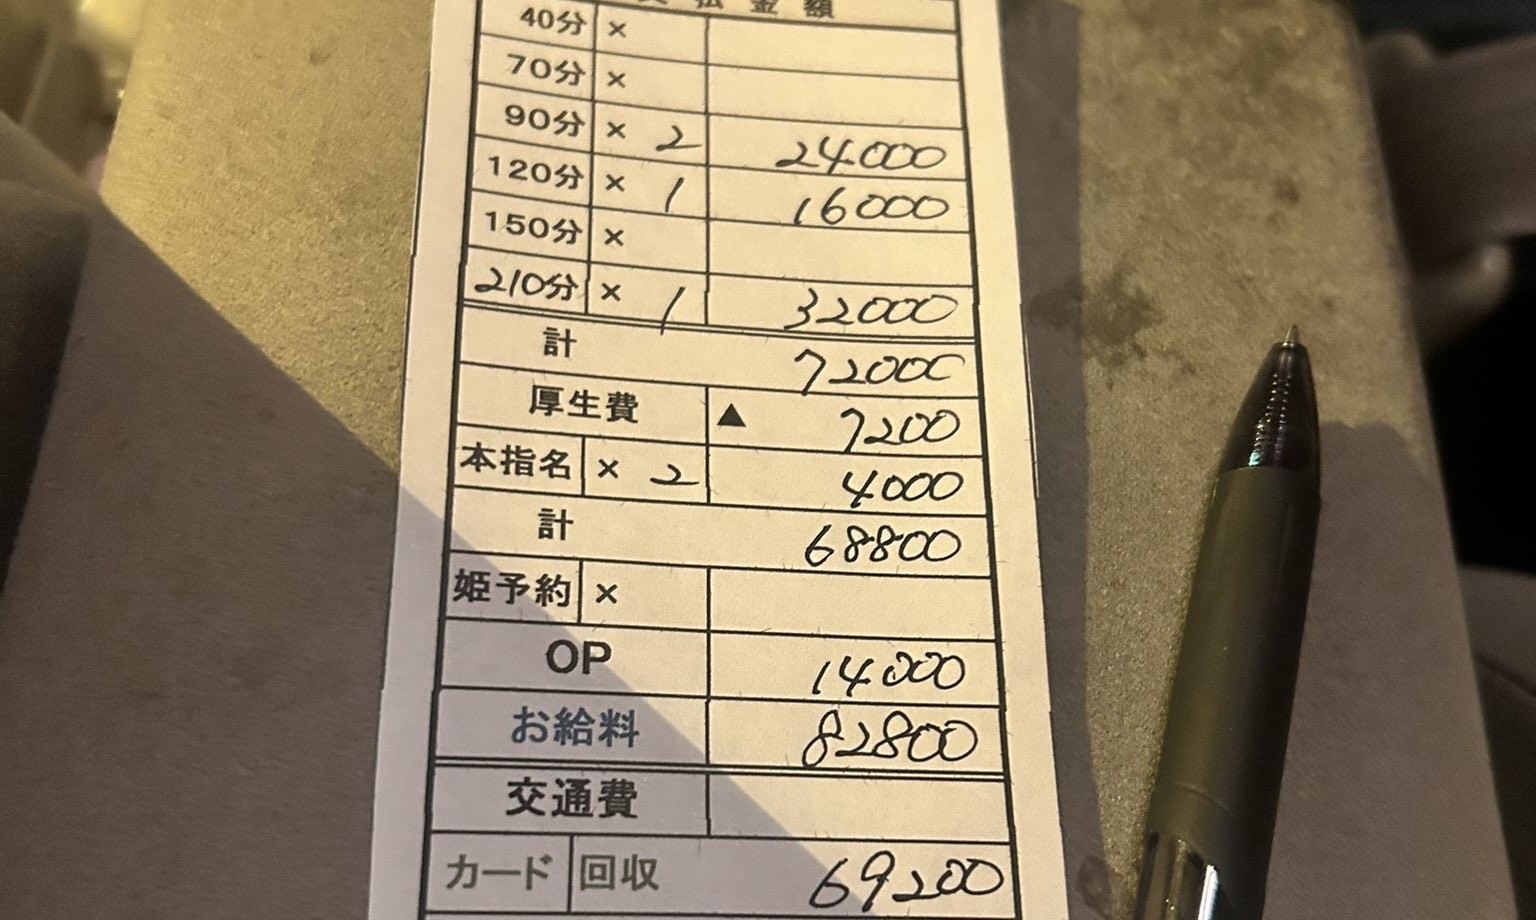 支払金額
40分 ×
70分 ×
90分 × 2 24000
120分 × 1 16000
150分 ×
210分 × 1 32000
計 72000
厚生費 ▲ 7200
本指名 × 2 4000
計 68800
姫予約 ×
OP 14000
お給料 82800
交通費
カード 回収 69200